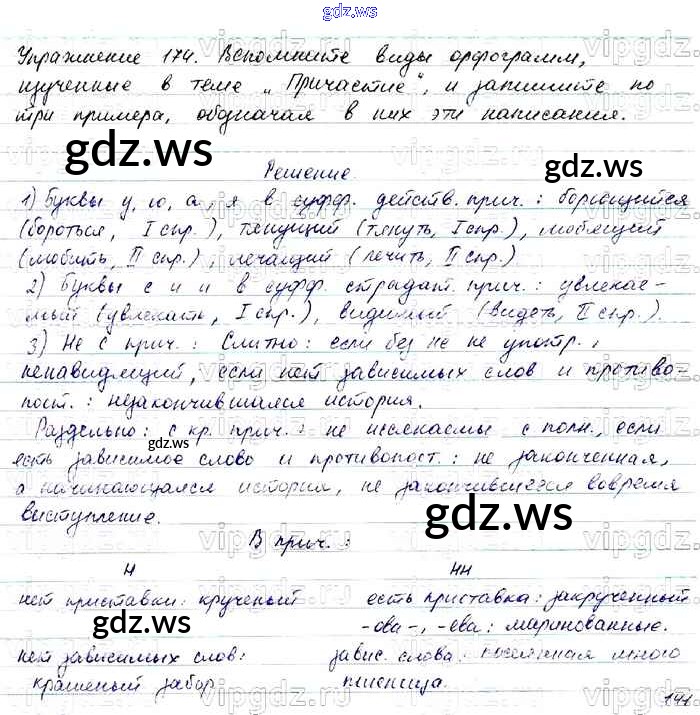 gdz.ws
Упражнение 174. Вспомните виды орфограмм,
изученные в теме „Причастие", и запишите по
три примера, обозначая в них эти написания.
gdz.ws
Решение.
1) Буквы у, ю, а, я в суфф. действ. прич.: борющийся
(бороться, I спр.), тянущий (тянуть, I спр.), любящий
(любить, II спр.), лечащий (лечить, II спр.)
2) Буквы е и и в суфф. страдат. прич.: увлекае-
мый (увлекать, I спр.), видимый (видеть, II спр.).
3) Не с прич.: Слитно: если без не не употр.,
ненавидящий, если нет зависимых слов и противо-
пост.: незакончившаяся история.
gdz.ws
Раздельно: с кр. прич.: не с полн., если
есть зависимое слово и противопост.: не законченная,
а начинающаяся история, не закончившееся вовремя
выступление.
gdz.ws
В прич.:
н нн
нет приставки: крученый есть приставка: закрученный
gdz.ws
-ова-, -ева: маринованные.
нет зависимых слов: завис. слова: много
крашеный забор пшеница.
141
vipgdz.ru